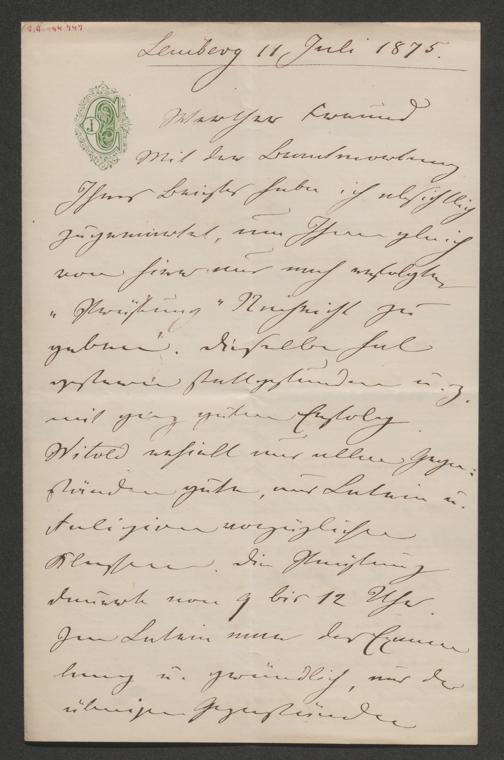 Lemberg 11 Juli 1875.
Werther Freund
Mit der Beantwortung
Ihres Briefes habe ich absichtlich
zugewartet, um Ihnen gleich
von hier aus nach erfolgter
"Prüfung" Nachricht zu
geben. Dieselbe hat
gestern stattgefunden u. z.
mit ganz gutem Erfolg.
Witold erhielt aus allen Gegen-
ständen gute, aus Latein u.
Religion vorzügliche
Klassen. Die Prüfung
dauerte von 9 bis 12 Uhr.
Im Latein war das Examen
lang u. gründlich, aus den
übrigen Gegenständen